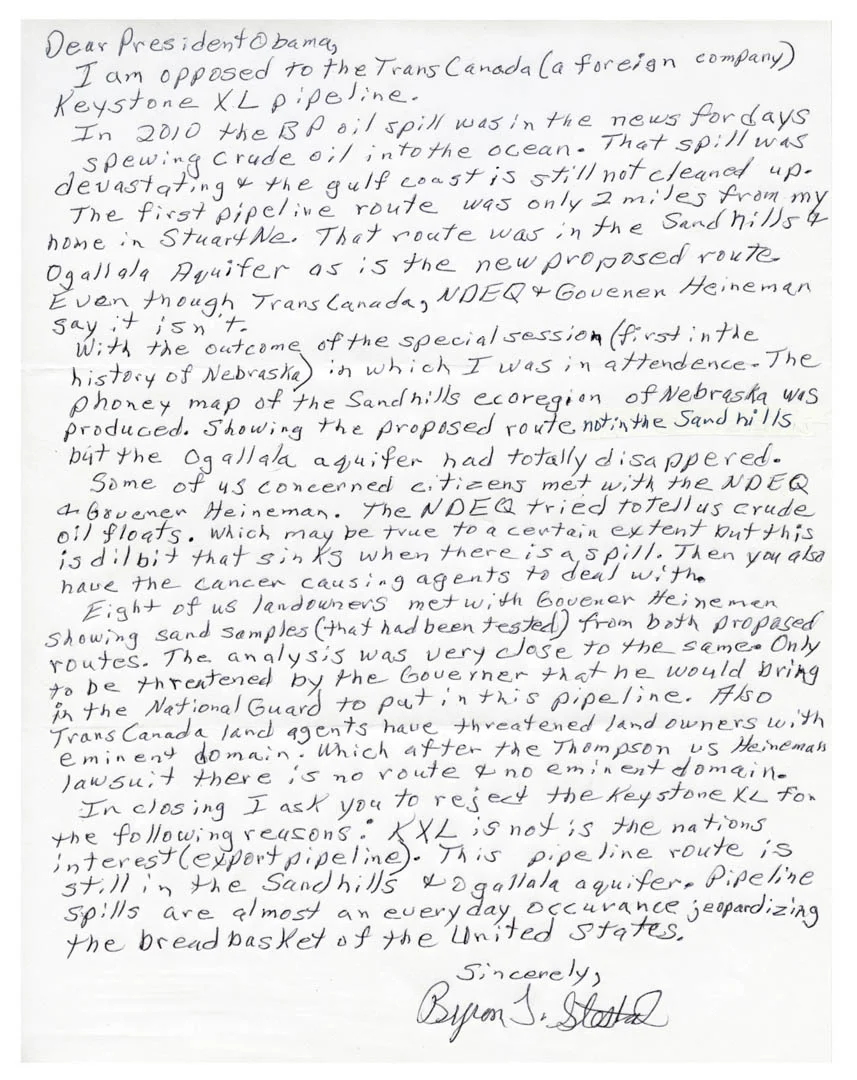 Dear President Obama,
I am opposed to the TransCanada (a foreign company)
Keystone XL pipeline.
In 2010 the BP oil spill was in the news for days
spewing crude oil into the ocean. That spill was
devastating & the gulf coast is still not cleaned up.
The first pipeline route was only 2 miles from my
home in Stuart Ne. That route was in the Sandhills &
Ogallala Aquifer as is the new proposed route.
Even though TransCanada, NDEQ & Govener Heineman
say it isn't.
With the outcome of the special session (first in the
history of Nebraska) in which I was in attendence. The
phoney map of the Sandhills ecoregion of Nebraska was
produced. Showing the proposed route not in the Sandhills
but the Ogallala aquifer had totally disappered.
Some of us concerned citizens met with the NDEQ
& Govener Heineman. The NDEQ tried to tell us crude
oil floats. Which may be true to a certain extent but this
is dilbit that sinks when there is a spill. Then you also
have the cancer causing agents to deal with.
Eight of us landowners met with Govener Heineman
showing sand samples (that had been tested) from both proposed
routes. The analysis was very close to the same. Only
to be threatened by the Governer that he would bring
in the National Guard to put in this pipeline. Also
TransCanada land agents have threatened land owners with
eminent domain. Which after the Thompson vs Heineman
lawsuit there is no route & no eminent domain.
In closing I ask you to reject the Keystone XL for
the following reasons: KXL is not is the nations
interest (export pipeline). This pipeline route is
still in the Sandhills & Ogallala aquifer. Pipeline
spills are almost an everyday occurance jeopardizing
the breadbasket of the United States.
Sincerely,
Byron